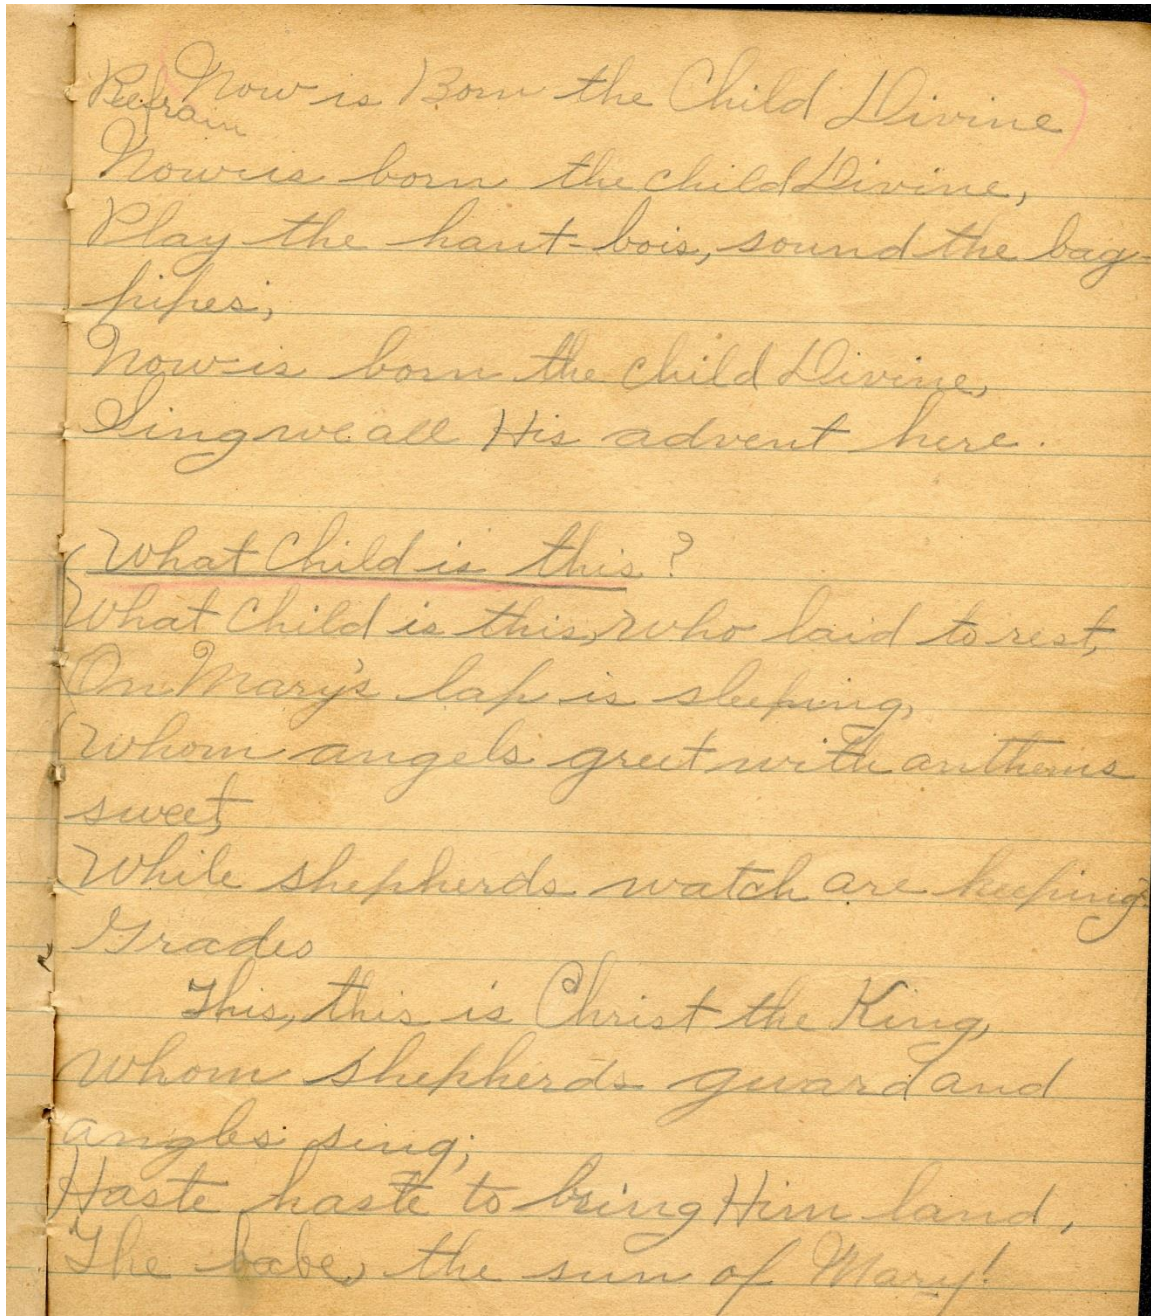 Now is Born the Child Divine
Refrain
Now is born the child Divine,
Play the haut-bois, sound the bag-
pipes;
Now is born the child Divine,
Sing we all His advent here.
What Child is this?
What Child is this, who laid to rest,
On Mary's lap is sleeping,
Whom angels greet with anthems
sweet,
While shepherds watch are keeping?
Grades
This, this is Christ the King,
Whom shepherds guard and
angles sing;
Haste haste to bring Him land,
The babe, the sun of Mary!